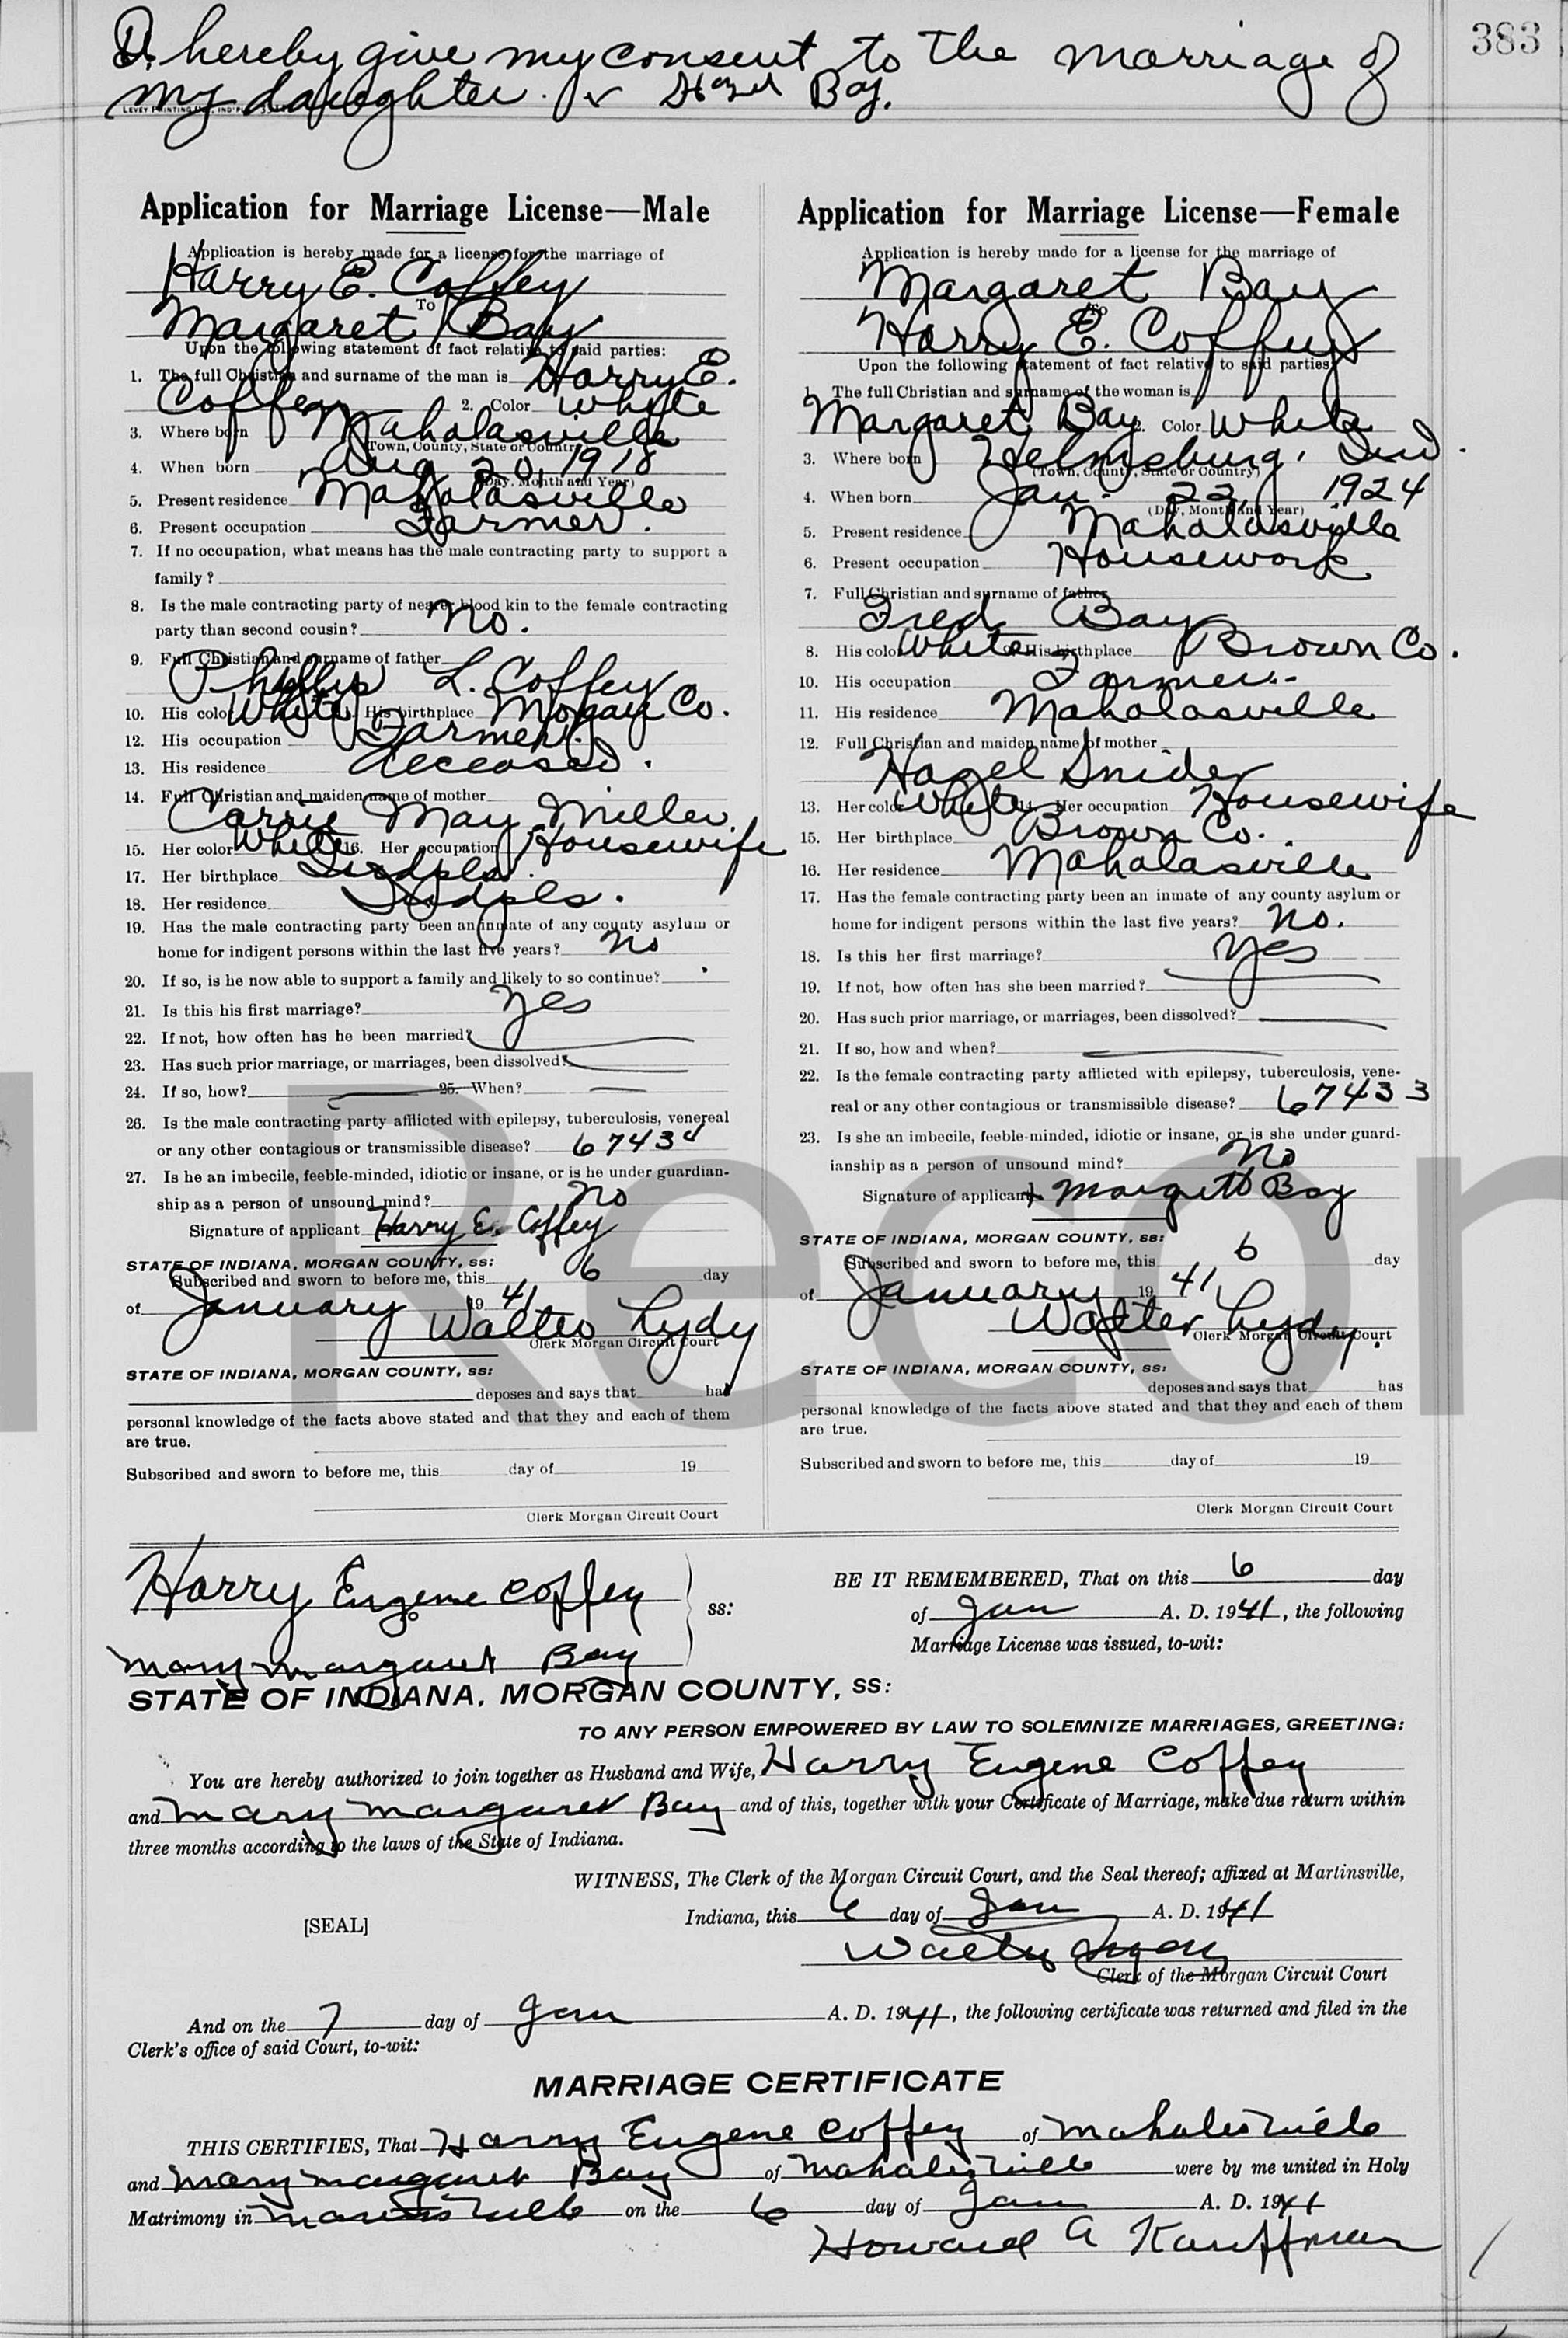 383
I hereby give my consent to the marriage of
my daughter. x Hazel Bay.
LEVEY PRINTING CO., IND'PLS
Application for Marriage License—Male
Application is hereby made for a license for the marriage of
Harry E. Coffey
To
Margaret Bay
Upon the following statement of fact relative to said parties:
1. The full Christian and surname of the man is Harry E.
Coffey 2. Color White
3. Where born Mahalasville
(Town, County, State or Country)
4. When born Aug 20, 1918
(Day, Month and Year)
5. Present residence Mahalasville
6. Present occupation Farmer.
7. If no occupation, what means has the male contracting party to support a
family?
8. Is the male contracting party of nearer blood kin to the female contracting
party than second cousin? No.
9. Full Christian and surname of father
Phillip L. Coffey
10. His color White His birthplace Morgan Co.
12. His occupation Farmer.
13. His residence deceased.
14. Full Christian and maiden name of mother
Carrie May Miller.
15. Her color White 16. Her occupation Housewife
17. Her birthplace Indpls.
18. Her residence Indpls.
19. Has the male contracting party been an inmate of any county asylum or
home for indigent persons within the last five years? No
20. If so, is he now able to support a family and likely to so continue?
21. Is this his first marriage? Yes
22. If not, how often has he been married?
23. Has such prior marriage, or marriages, been dissolved?
24. If so, how? 25. When?
26. Is the male contracting party afflicted with epilepsy, tuberculosis, venereal
or any other contagious or transmissible disease? 67434
27. Is he an imbecile, feeble-minded, idiotic or insane, or is he under guardian-
ship as a person of unsound mind? No
Signature of applicant Harry E. Coffey
STATE OF INDIANA, MORGAN COUNTY, ss:
Subscribed and sworn to before me, this 6 day
of January 19 41
Walter Lydy
Clerk Morgan Circuit Court
STATE OF INDIANA, MORGAN COUNTY, ss:
deposes and says that has
personal knowledge of the facts above stated and that they and each of them
are true.
Subscribed and sworn to before me, this day of 19
Clerk Morgan Circuit Court
Application for Marriage License—Female
Application is hereby made for a license for the marriage of
Margaret Bay
To
Harry E. Coffey
Upon the following statement of fact relative to said parties:
1. The full Christian and surname of the woman is
Margaret Bay 2. Color White
3. Where born Helmsburg, Ind.
(Town, County, State or Country)
4. When born Jan. 22, 1924
(Day, Month and Year)
5. Present residence Mahalasville
6. Present occupation Housework
7. Full Christian and surname of father
Fred Bay
8. His color White His birthplace Brown Co.
10. His occupation Farmer.
11. His residence Mahalasville
12. Full Christian and maiden name of mother
Hazel Snider
13. Her color White 14. Her occupation Housewife
15. Her birthplace Brown Co.
16. Her residence Mahalasville
17. Has the female contracting party been an inmate of any county asylum or
home for indigent persons within the last five years? No.
18. Is this her first marriage? Yes
19. If not, how often has she been married?
20. Has such prior marriage, or marriages, been dissolved?
21. If so, how and when?
22. Is the female contracting party afflicted with epilepsy, tuberculosis, vene-
real or any other contagious or transmissible disease? 67433
23. Is she an imbecile, feeble-minded, idiotic or insane, or is she under guard-
ianship as a person of unsound mind? No
Signature of applicant x Margrett Bay
STATE OF INDIANA, MORGAN COUNTY, ss:
Subscribed and sworn to before me, this 6 day
of January 19 41
Walter Lydy.
Clerk Morgan Circuit Court
STATE OF INDIANA, MORGAN COUNTY, ss:
deposes and says that has
personal knowledge of the facts above stated and that they and each of them
are true.
Subscribed and sworn to before me, this day of 19
Clerk Morgan Circuit Court
Harry Eugene Coffey
ss:
Mary Margaret Bay
BE IT REMEMBERED, That on this 6 day
of Jan A. D. 1941, the following
Marriage License was issued, to-wit:
STATE OF INDIANA, MORGAN COUNTY, ss:
TO ANY PERSON EMPOWERED BY LAW TO SOLEMNIZE MARRIAGES, GREETING:
You are hereby authorized to join together as Husband and Wife, Harry Eugene Coffey
and Mary Margaret Bay and of this, together with your Certificate of Marriage, make due return within
three months according to the laws of the State of Indiana.
WITNESS, The Clerk of the Morgan Circuit Court, and the Seal thereof; affixed at Martinsville,
[SEAL] Indiana, this 6 day of Jan A. D. 1941
Walter Lydy
Clerk of the Morgan Circuit Court
And on the 7 day of Jan A. D. 1941, the following certificate was returned and filed in the
Clerk's office of said Court, to-wit:
MARRIAGE CERTIFICATE
THIS CERTIFIES, That Harry Eugene Coffey of Mahalasville
and Mary Margaret Bay of Mahalasville were by me united in Holy
Matrimony in Martinsville on the 6 day of Jan A. D. 1941
Howard A Kauffman
Recor